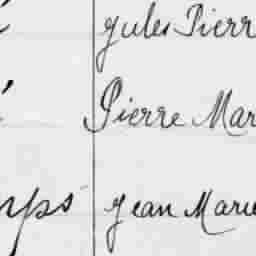 Jules Pierr
Pierre Mar
Jean Marie